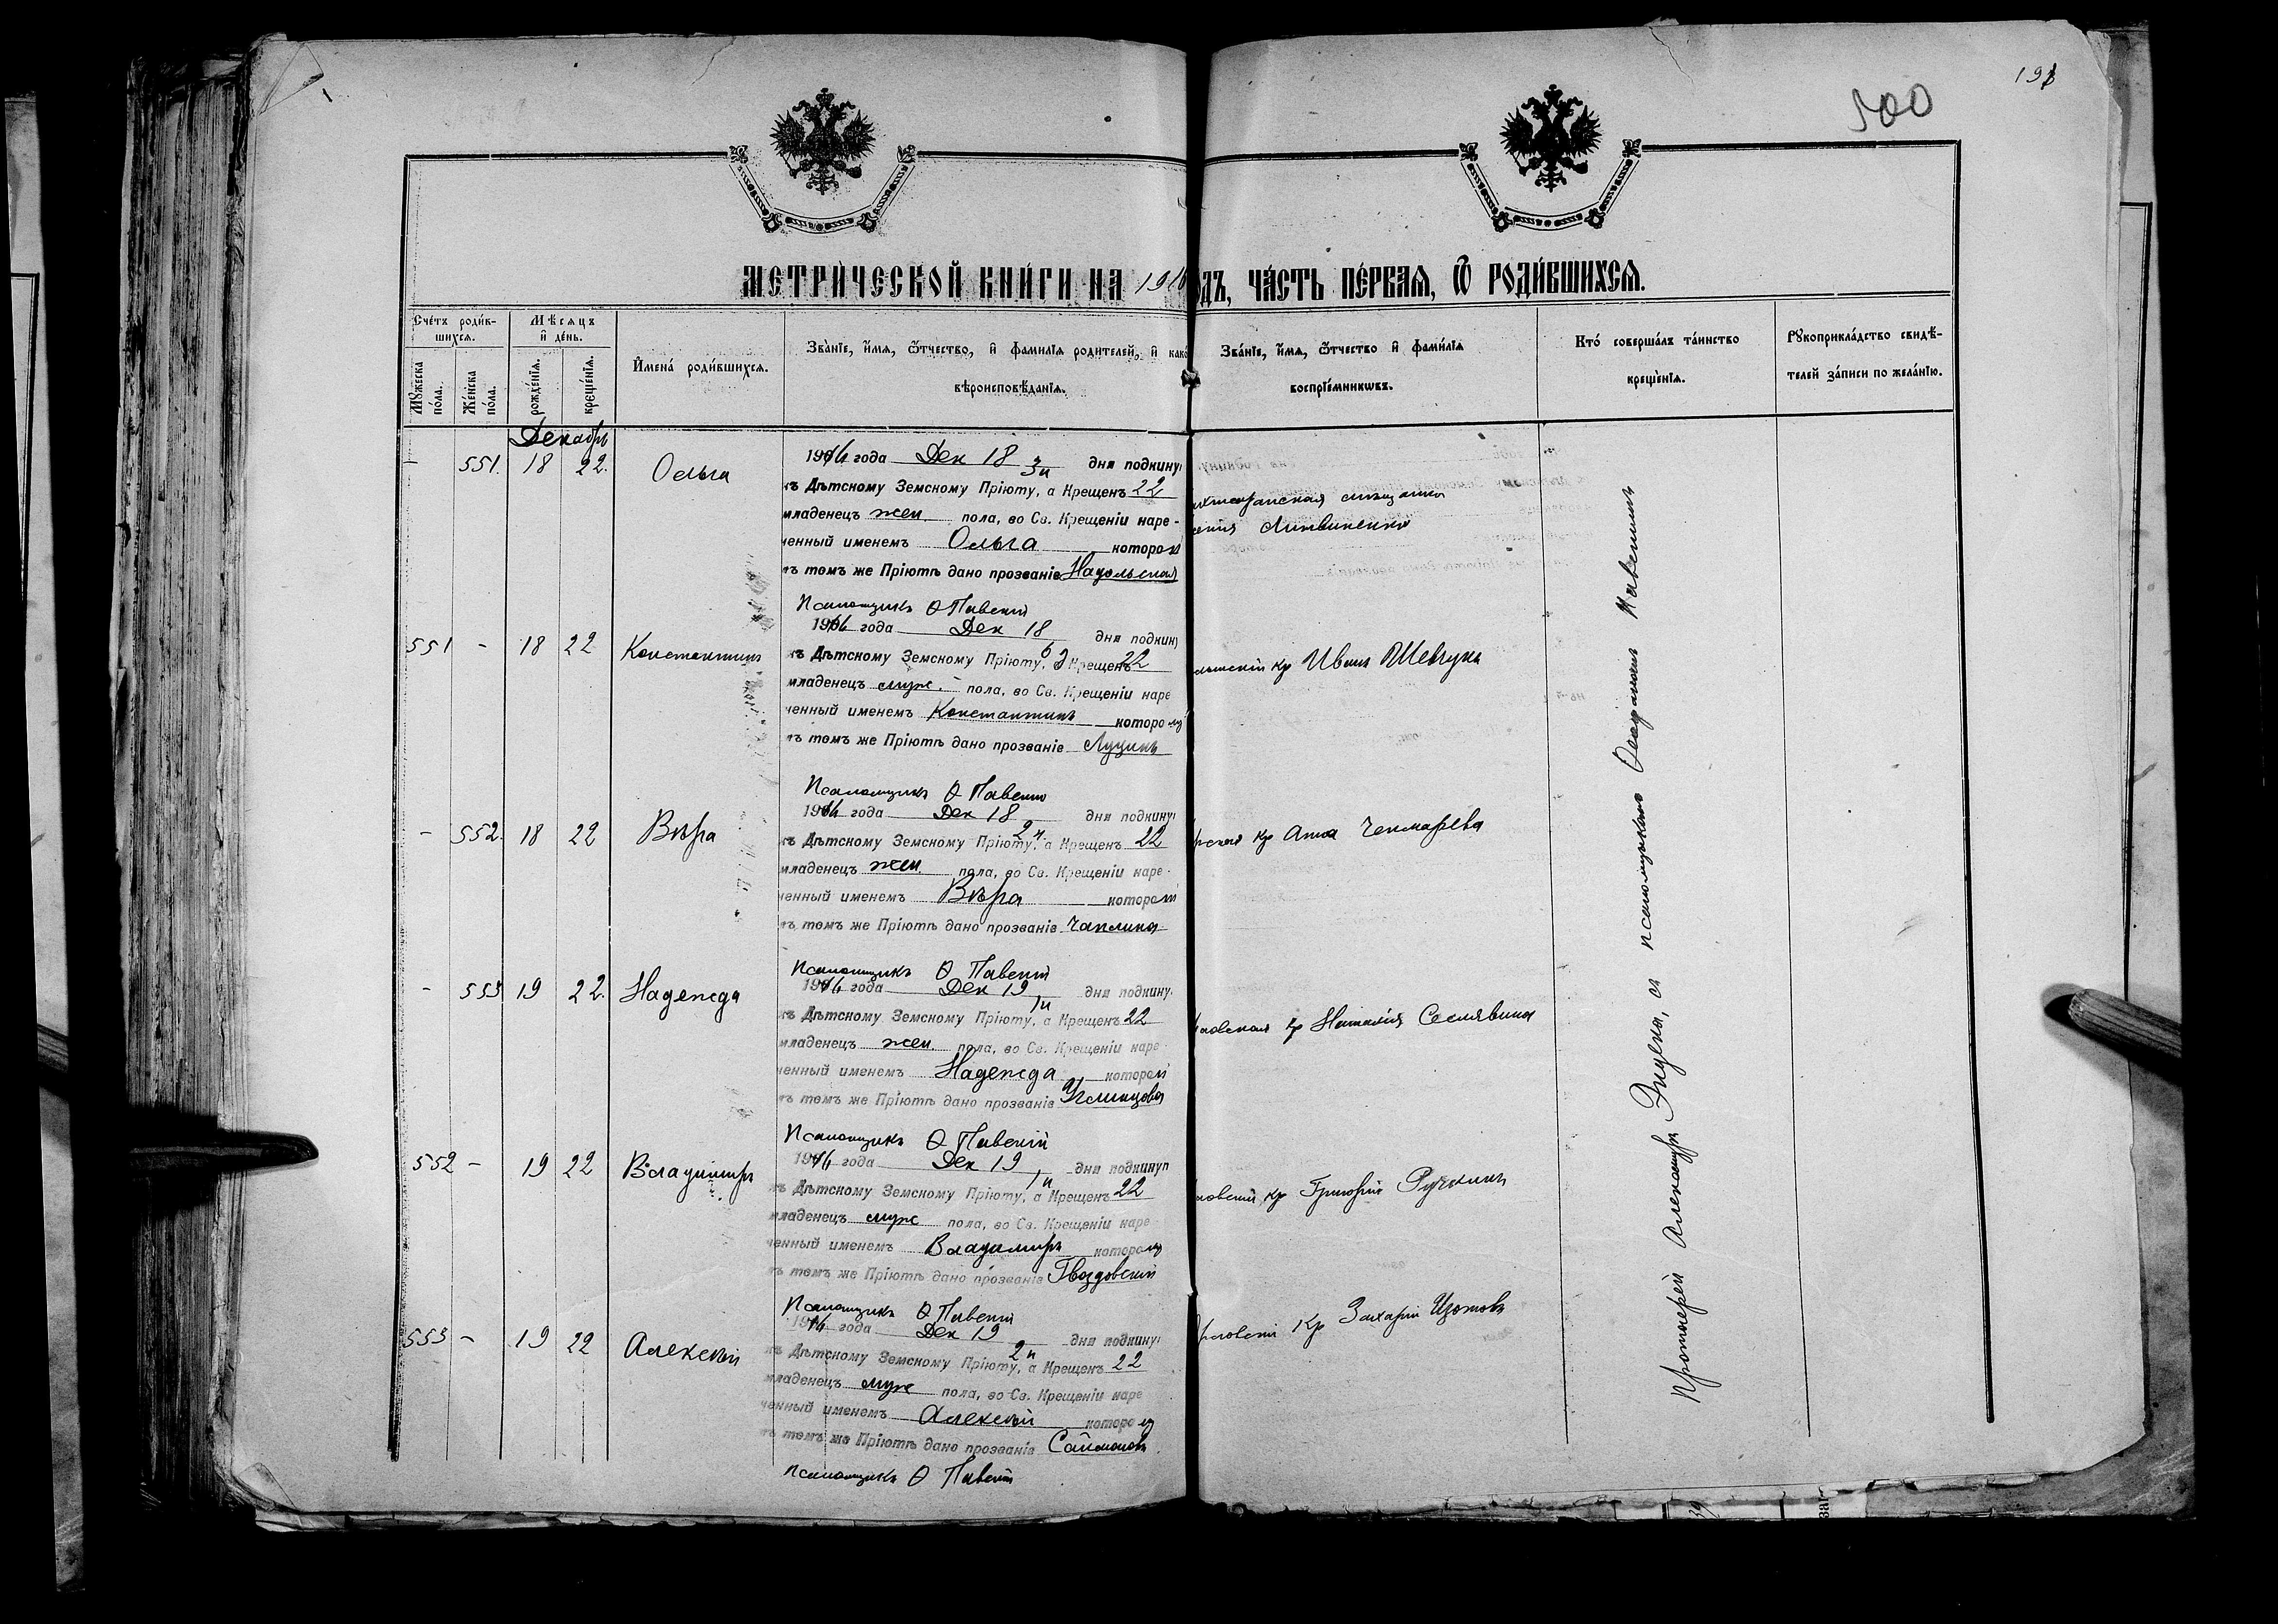 193
500
МЕТРИЧЕСКОЙ КНИГИ НА 1916
ДЪ, ЧАСТЬ ПЕРВАЯ, Ѿ РОДИВШИХСЯ.
Счетъ родив-
шихся.
Мѣсяцъ
и день.
Имена родившихся.
Званіе, имя, ѿчество, и фамилія родителей, и како
вѣроисповѣданія.
Званіе, имя, ѿчество и фамилія
воспріемниковъ.
Кто совершалъ таинство
крещенія.
Рукоприкладство свидѣ-
телей записи по желанію.
Мужеска
пола.
Женска
пола.
рожденія.
крещенія.
Декабрь
- 551. 18 22. Ольга
1916 года Дек 18 3ч дня подкину
къ Дѣтскому Земскому Пріюту, а Крещенъ 22
младенецъ жен. пола, во Св. Крещеніи наре-
ченный именемъ Ольга которой
въ томъ же Пріютѣ дано прозваніе Надольская
мѣщанка
Литвиненко
Псаломщикъ Ѳ Павскій
551 - 18 22 Константинъ
1916 года Дек 18 дня подкин
къ Дѣтскому Земскому Пріюту, а Крещенъ 22
младенецъ муж. пола, во Св. Крещеніи наре
ченный именемъ Константинъ которому
въ томъ же Пріютѣ дано прозваніе Луцинъ
кр Иванъ Шевчукъ
Псаломщикъ Ѳ Павскій
- 552. 18 22 Вѣра
1916 года Дек 18 дня подкину
къ Дѣтскому Земскому Пріюту, 2ч. а Крещенъ 22
младенецъ жен. пола, во Св. Крещеніи наре-
ченный именемъ Вѣра которой
въ томъ же Пріютѣ дано прозваніе Чаплина
кр Анна Чекмарева
Псаломщикъ Ѳ Павскій
- 553 19 22. Надежда
1916 года Дек 19 1ч дня подкину
къ Дѣтскому Земскому Пріюту, а Крещенъ 22
младенецъ жен. пола, во Св. Крещеніи наре-
ченный именемъ Надежда которой
въ томъ же Пріютѣ дано прозваніе
кр Наталія Сеславина
Псаломщикъ Ѳ Павскій
552 - 19 22 Владимиръ
1916 года Дек 19 1ч дня подкинут
къ Дѣтскому Земскому Пріюту, а Крещенъ 22
младенецъ муж пола, во Св. Крещеніи наре
ченный именемъ Владимиръ которому
въ томъ же Пріютѣ дано прозваніе Гвоздовскій
кр Григорій Ручкинъ
Псаломщикъ Ѳ Павскій
553 - 19 22 Алексѣй
1916 года Дек 19 дня подкину
къ Дѣтскому Земскому Пріюту, 2ч а Крещенъ 22
младенецъ муж пола, во Св. Крещеніи наре
ченный именемъ Алексѣй которому
въ томъ же Пріютѣ дано прозваніе Саймоновъ
кр Захарій Изотовъ
Псаломщикъ Ѳ Павскій
Протоіерей Александръ съ псаломщикомъ Павскимъ